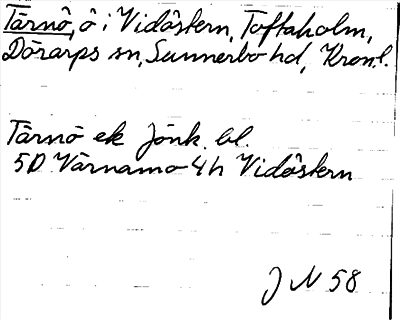 Tärnö, ö i Vidöstern, Toftaholm,
Dörarps sn, Sunnerbo hd, Kron.l.
Tärnö ek Jönk. bl.
5D Värnamo 4h Vidöstern
J N 58